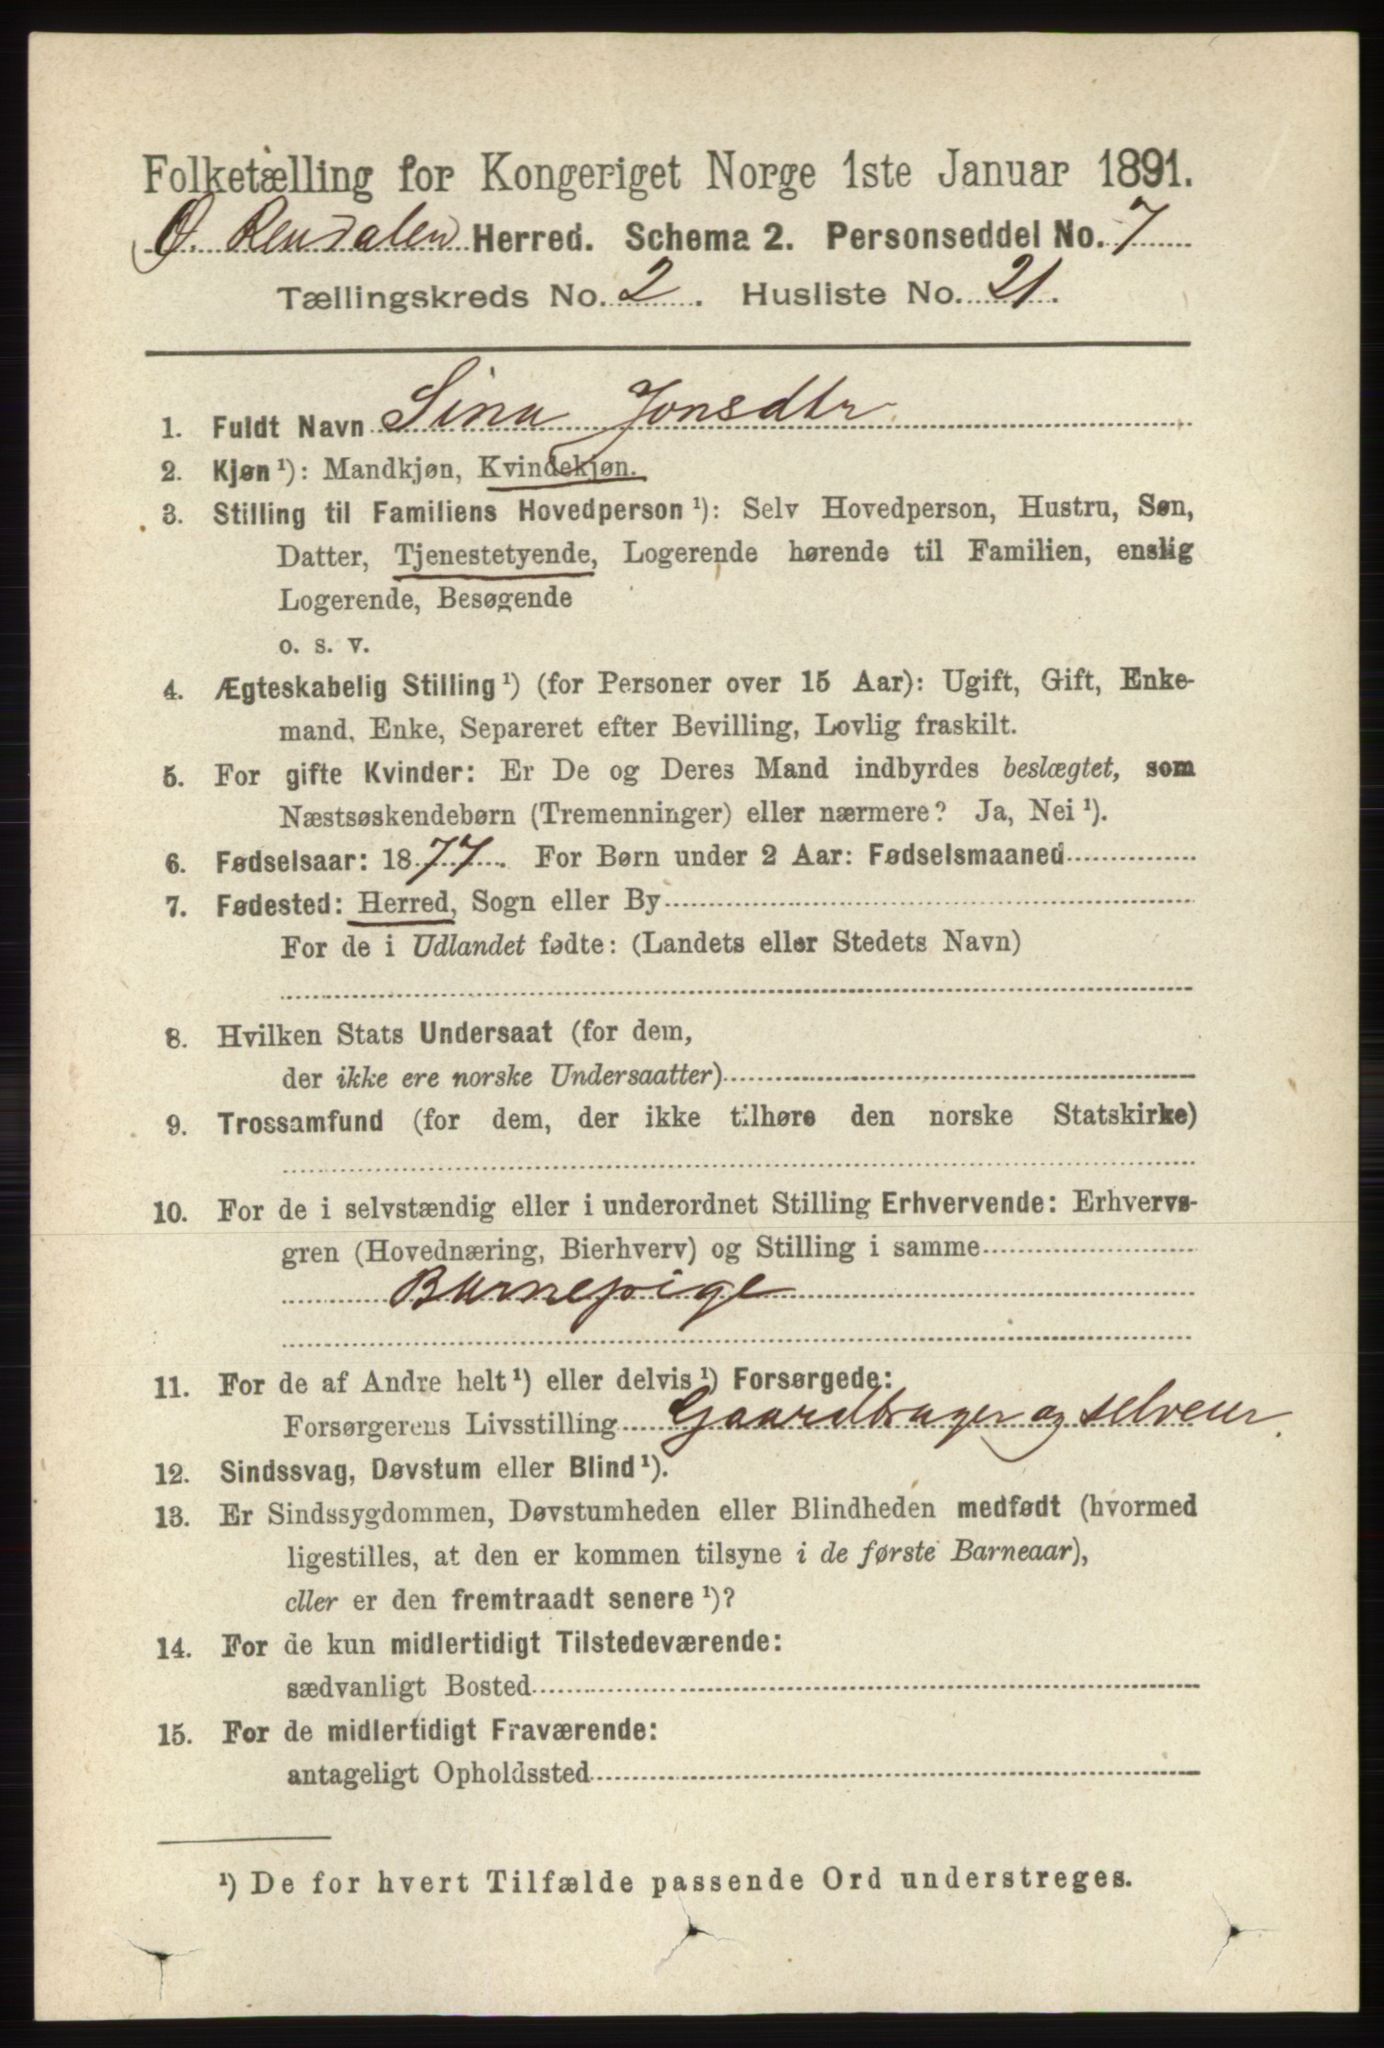 Folketælling for Kongeriget Norge 1ste Januar 1891.
Ø. Rendalen Herred. Schema 2. Personseddel No. 7
Tællingskreds No. 2. Husliste No. 21.
1. Fuldt Navn Sina Jonsdtr
2. Kjøn ¹): Mandkjøn, Kvindekjøn.
3. Stilling til Familiens Hovedperson ¹): Selv Hovedperson, Hustru, Søn,
Datter, Tjenestetyende, Logerende hørende til Familien, enslig
Logerende, Besøgende
o. s. v.
4. Ægteskabelig Stilling ¹) (for Personer over 15 Aar): Ugift, Gift, Enke-
mand, Enke, Separeret efter Bevilling, Lovlig fraskilt.
5. For gifte Kvinder: Er De og Deres Mand indbyrdes beslægtet, som
Næstsøskendebørn (Tremenninger) eller nærmere? Ja, Nei ¹).
6. Fødselsaar: 1877. For Børn under 2 Aar: Fødselsmaaned
7. Fødested: Herred, Sogn eller By
For de i Udlandet fødte: (Landets eller Stedets Navn)
8. Hvilken Stats Undersaat (for dem,
der ikke ere norske Undersaatter)
9. Trossamfund (for dem, der ikke tilhøre den norske Statskirke)
10. For de i selvstændig eller i underordnet Stilling Erhvervende: Erhvervs-
gren (Hovednæring, Bierhverv) og Stilling i samme
Barnepige
11. For de af Andre helt ¹) eller delvis ¹) Forsørgede:
Forsørgerens Livsstilling Gaardbruger og selveier.
12. Sindssvag, Døvstum eller Blind ¹).
13. Er Sindssygdommen, Døvstumheden eller Blindheden medfødt (hvormed
ligestilles, at den er kommen tilsyne i de første Barneaar),
eller er den fremtraadt senere ¹)?
14. For de kun midlertidigt Tilstedeværende:
sædvanligt Bosted
15. For de midlertidigt Fraværende:
antageligt Opholdssted
¹) De for hvert Tilfælde passende Ord understreges.